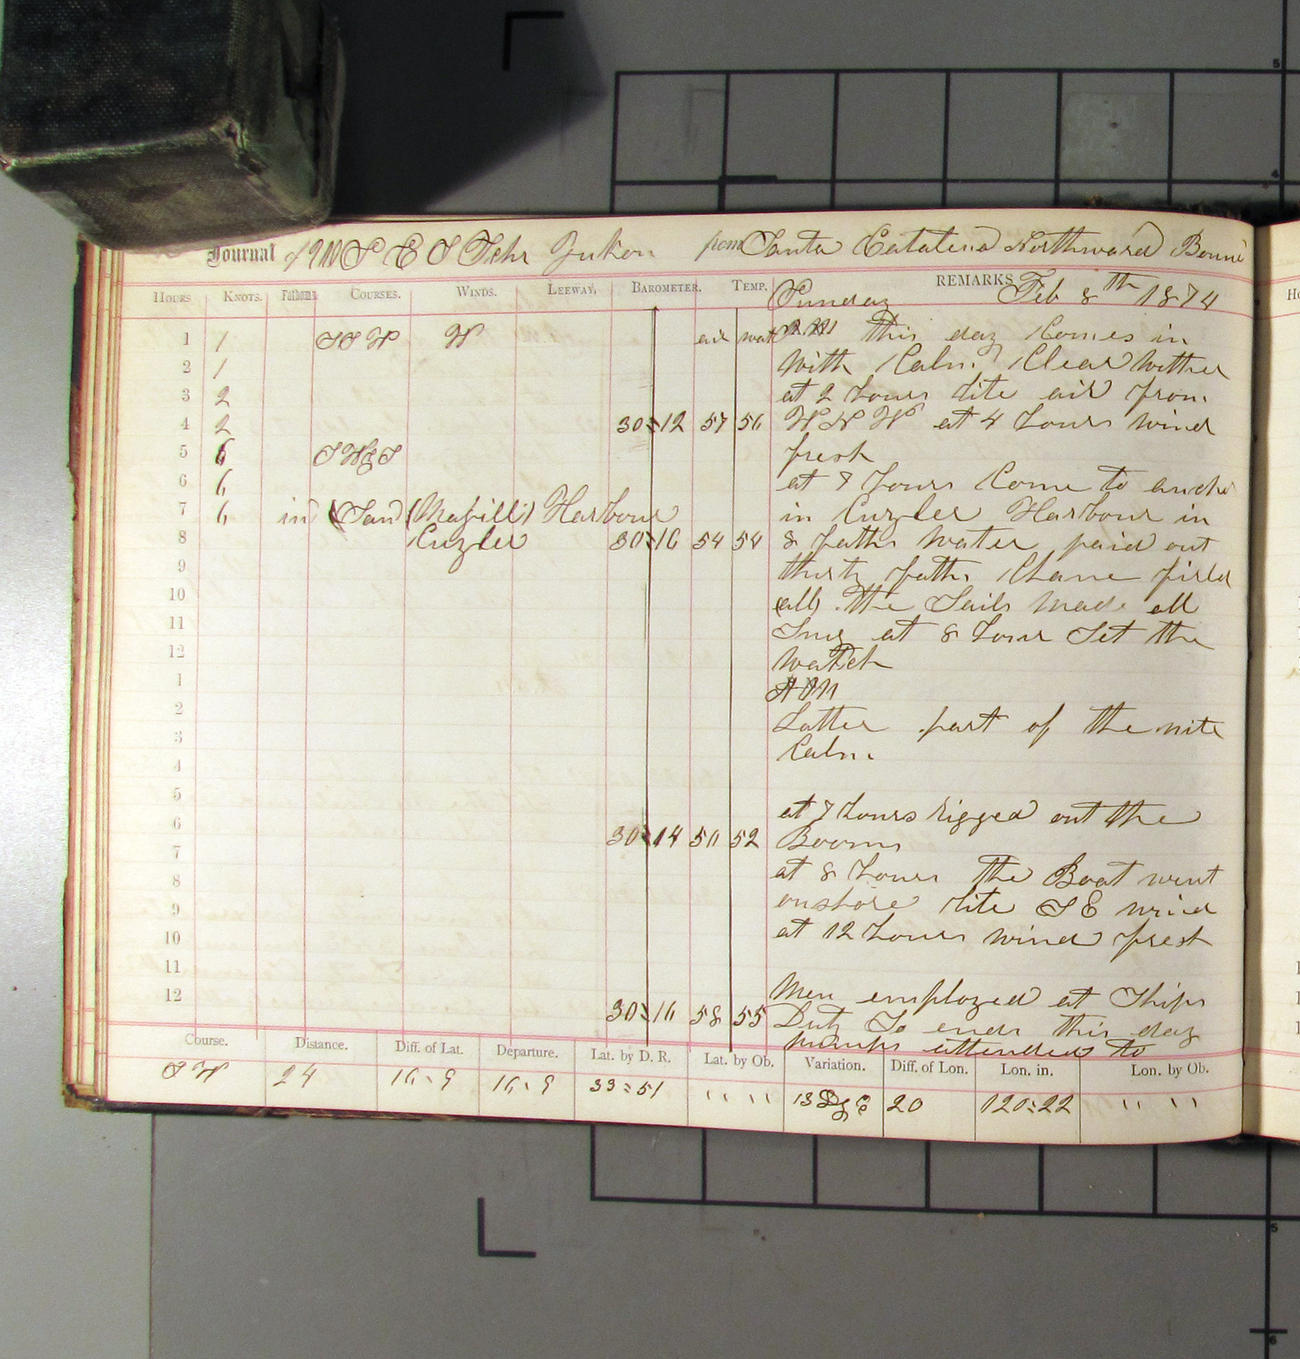 Journal of U S C S Schr Yukon from Santa Catalina Northward Bound
HOURS KNOTS. Fathoms COURSES. WINDS. LEEWAY. BAROMETER. TEMP. REMARKS Feb 8th 1874
Sunday
1 1 SSW W air wat P.M this day Comes in
2 1 With Calm Clear wither
3 2 at 2 hours lite air from
4 2 30:12 57 56 W N W at 4 hours wind
5 6 SWbyS fresh
6 6 at 7 hours Come to anchor
7 6 in (San (Maguill) Harbour in Cuyler Harbour in
8 Cuyler 30:16 54 54 8 faths water paid out
9 thirty faths Chane firld
10 (all) the Sails made all
11 Snug at 8 hour Set the
12 watch
1 A M
2 Latter part of the nite
3 Calm
4
5 at 7 hours rigged out the
6 30:14 50 52 Booms
7 at 8 hours the Boat went
8 onshore lite S E wind
9 at 12 hours wind fresh
10
11 Men employed at Ships
12 30:16 58 55 Duty So ends this day
pumps attended to
Course. Distance. Diff. of Lat. Departure. Lat. by D. R. Lat. by Ob. Variation. Diff. of Lon. Lon. in. Lon. by Ob.
S W 24 16:9 16:9 33:51 " " " " 13 Dg E 20 120:22 " " " "